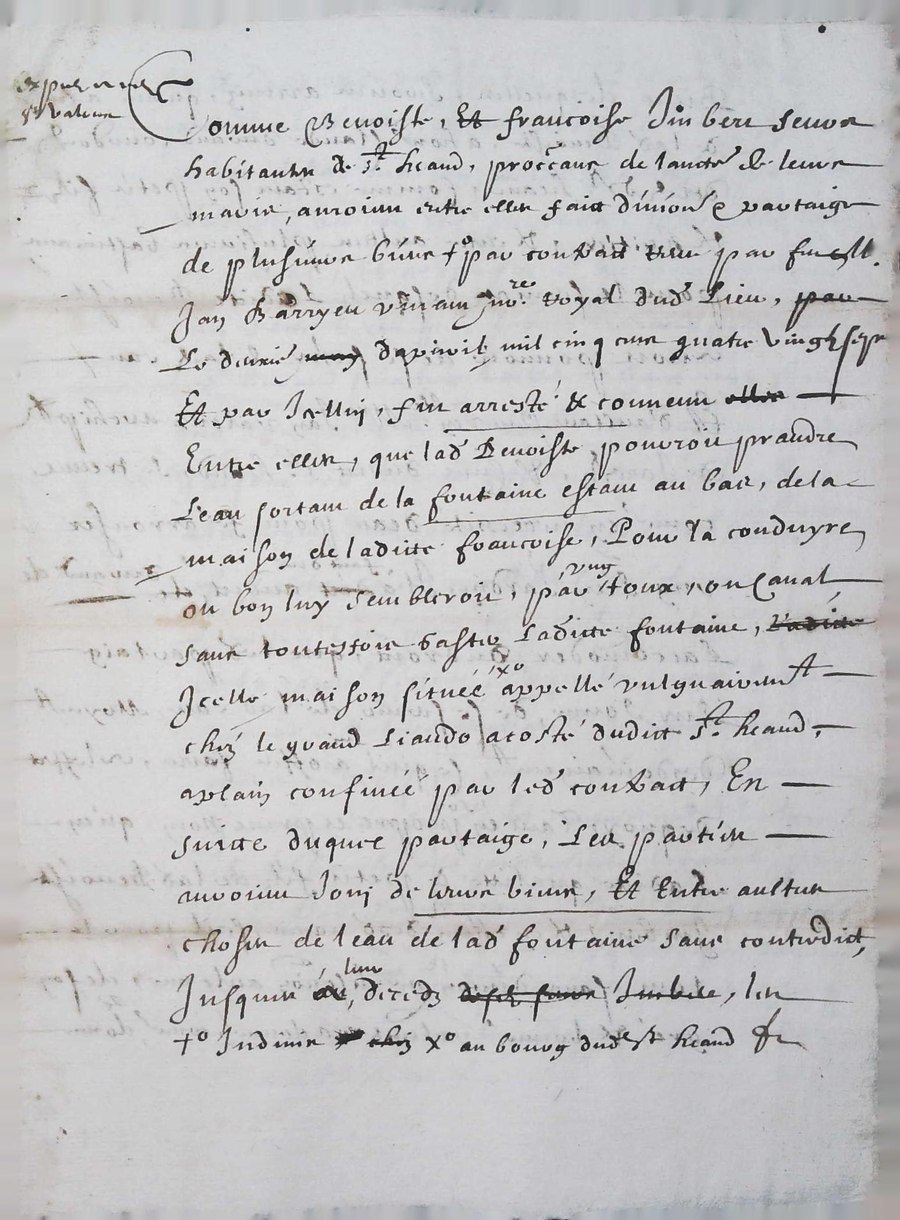 Comme Benoiste, Et francoise Imbert seurs
habitantes de St. heand, proceans de lautte de leurs
maris, auroient entre elles faict division & partaige
de plusieurs biens +o par contract receu par feu
Jan Barryeu vivant nore. royal dud Lieu, par
Le deusie may dapvril mil cinq cens quatre vinght sept
Et par Icelluy, fut arresté & convenu elles
Entre elles, que lad Benoiste pouvroit prandre
L'eau sortant de la fontaine estant au bas, de la
maison de laditte francoise, Pour la conduyre
ou bon luy sembleroit, par vng toux, ou Canal
sans touttesfois gaster Laditte fontaine, Laditte
Icelle maison située xo appellé vulguairement
ches le grand Liaudo acosté dudict St. heand,
aplain confinée par led contract, En
suitte duquel partaige, Les parties
auroient Joui de leurs biens, Et Entre aultres
choses de l'eau de lad fontaine sans contredict,
Jusques au leur deceds Imbert, les
+o Indivis chez xo au bourg dud St heand &